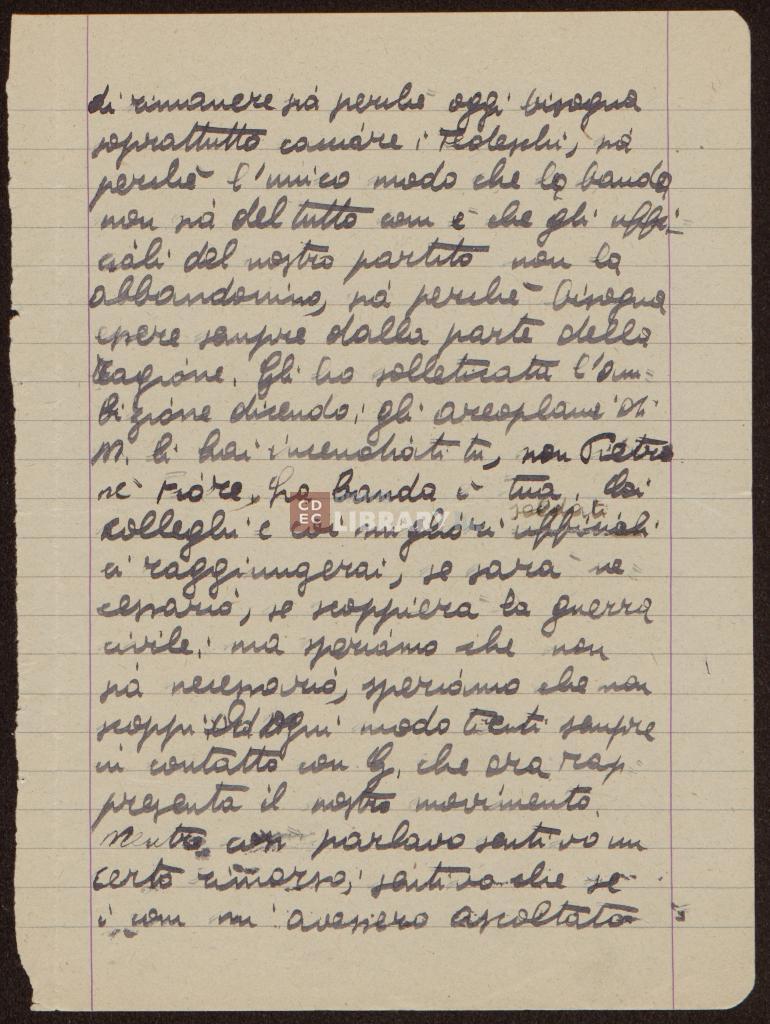 di rimanere sia perché oggi bisogna
soprattutto cacciare i Tedeschi, sia
perché l'unico modo che la banda
non sia del tutto com è che gli uffi-
ciali del nostro partito non la
abbandonino, sia perché bisogna
essere sempre dalla parte della
ragione. Gli ho solleticata l'am-
bizione dicendo: gli areoplani di
M. li hai incendiati tu, non Pietro
né Fiore. La banda è tua. Coi
colleghi e coi migliori ufficiali
soldati
ci raggiungerai, se sarà ne-
cessario, se scoppierà la guerra
civile; ma speriamo che non
sia necessario, speriamo che non
scoppi. Ad ogni modo tienti sempre
in contatto con G. che ora rap-
presenta il nostro movimento.
Mentre così parlavo sentivo un
certo rimorso; sentivo che se
i com mi avessero ascoltato
CDEC LIBRARY